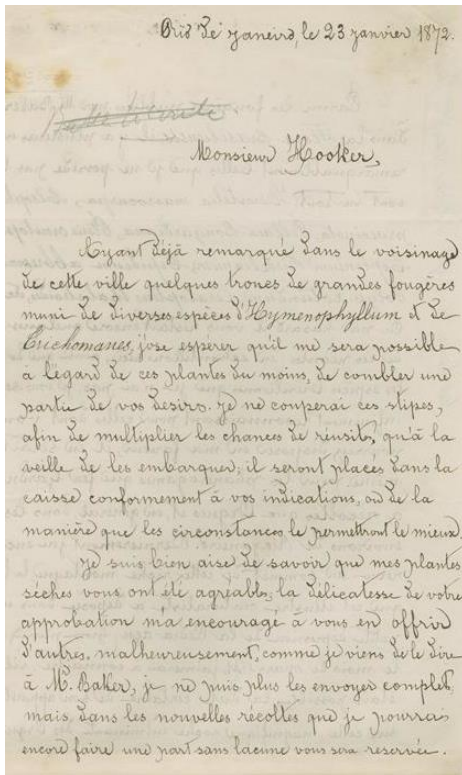 Rio de Janeiro, le 23 janvier 1872.
Monsieur Hooker,
Ayant déjà remarqué dans le voisinage
de cette ville quelques troncs de grandes fougères
muni de diverses espèces d'Hymenophyllum et de
Trichomanes, j'ose esperer qu'il me sera possible
à l'égard de ces plantes du moins, de combler une
partie de vos desirs. Je ne couperai ces stipes,
afin de multiplier les chances de réussite, qu'à la
veille de les embarquer; il seront placés dans la
caisse conformement à vos indications, où de la
manière que les circonstances le permettront le mieux.
Je suis bien aise de savoir que mes plantes
sèches vous ont été agréable; la délicatesse de votre
approbation m'a encouragé à vous en offrir
d'autres. malheureusement, comme je viens de le dire
à Mr. Baker, je ne puis plus les envoyer complet;
mais, dans les nouvelles récoltes que je pourrai
encore faire une part sans lacune vous sera reservée.